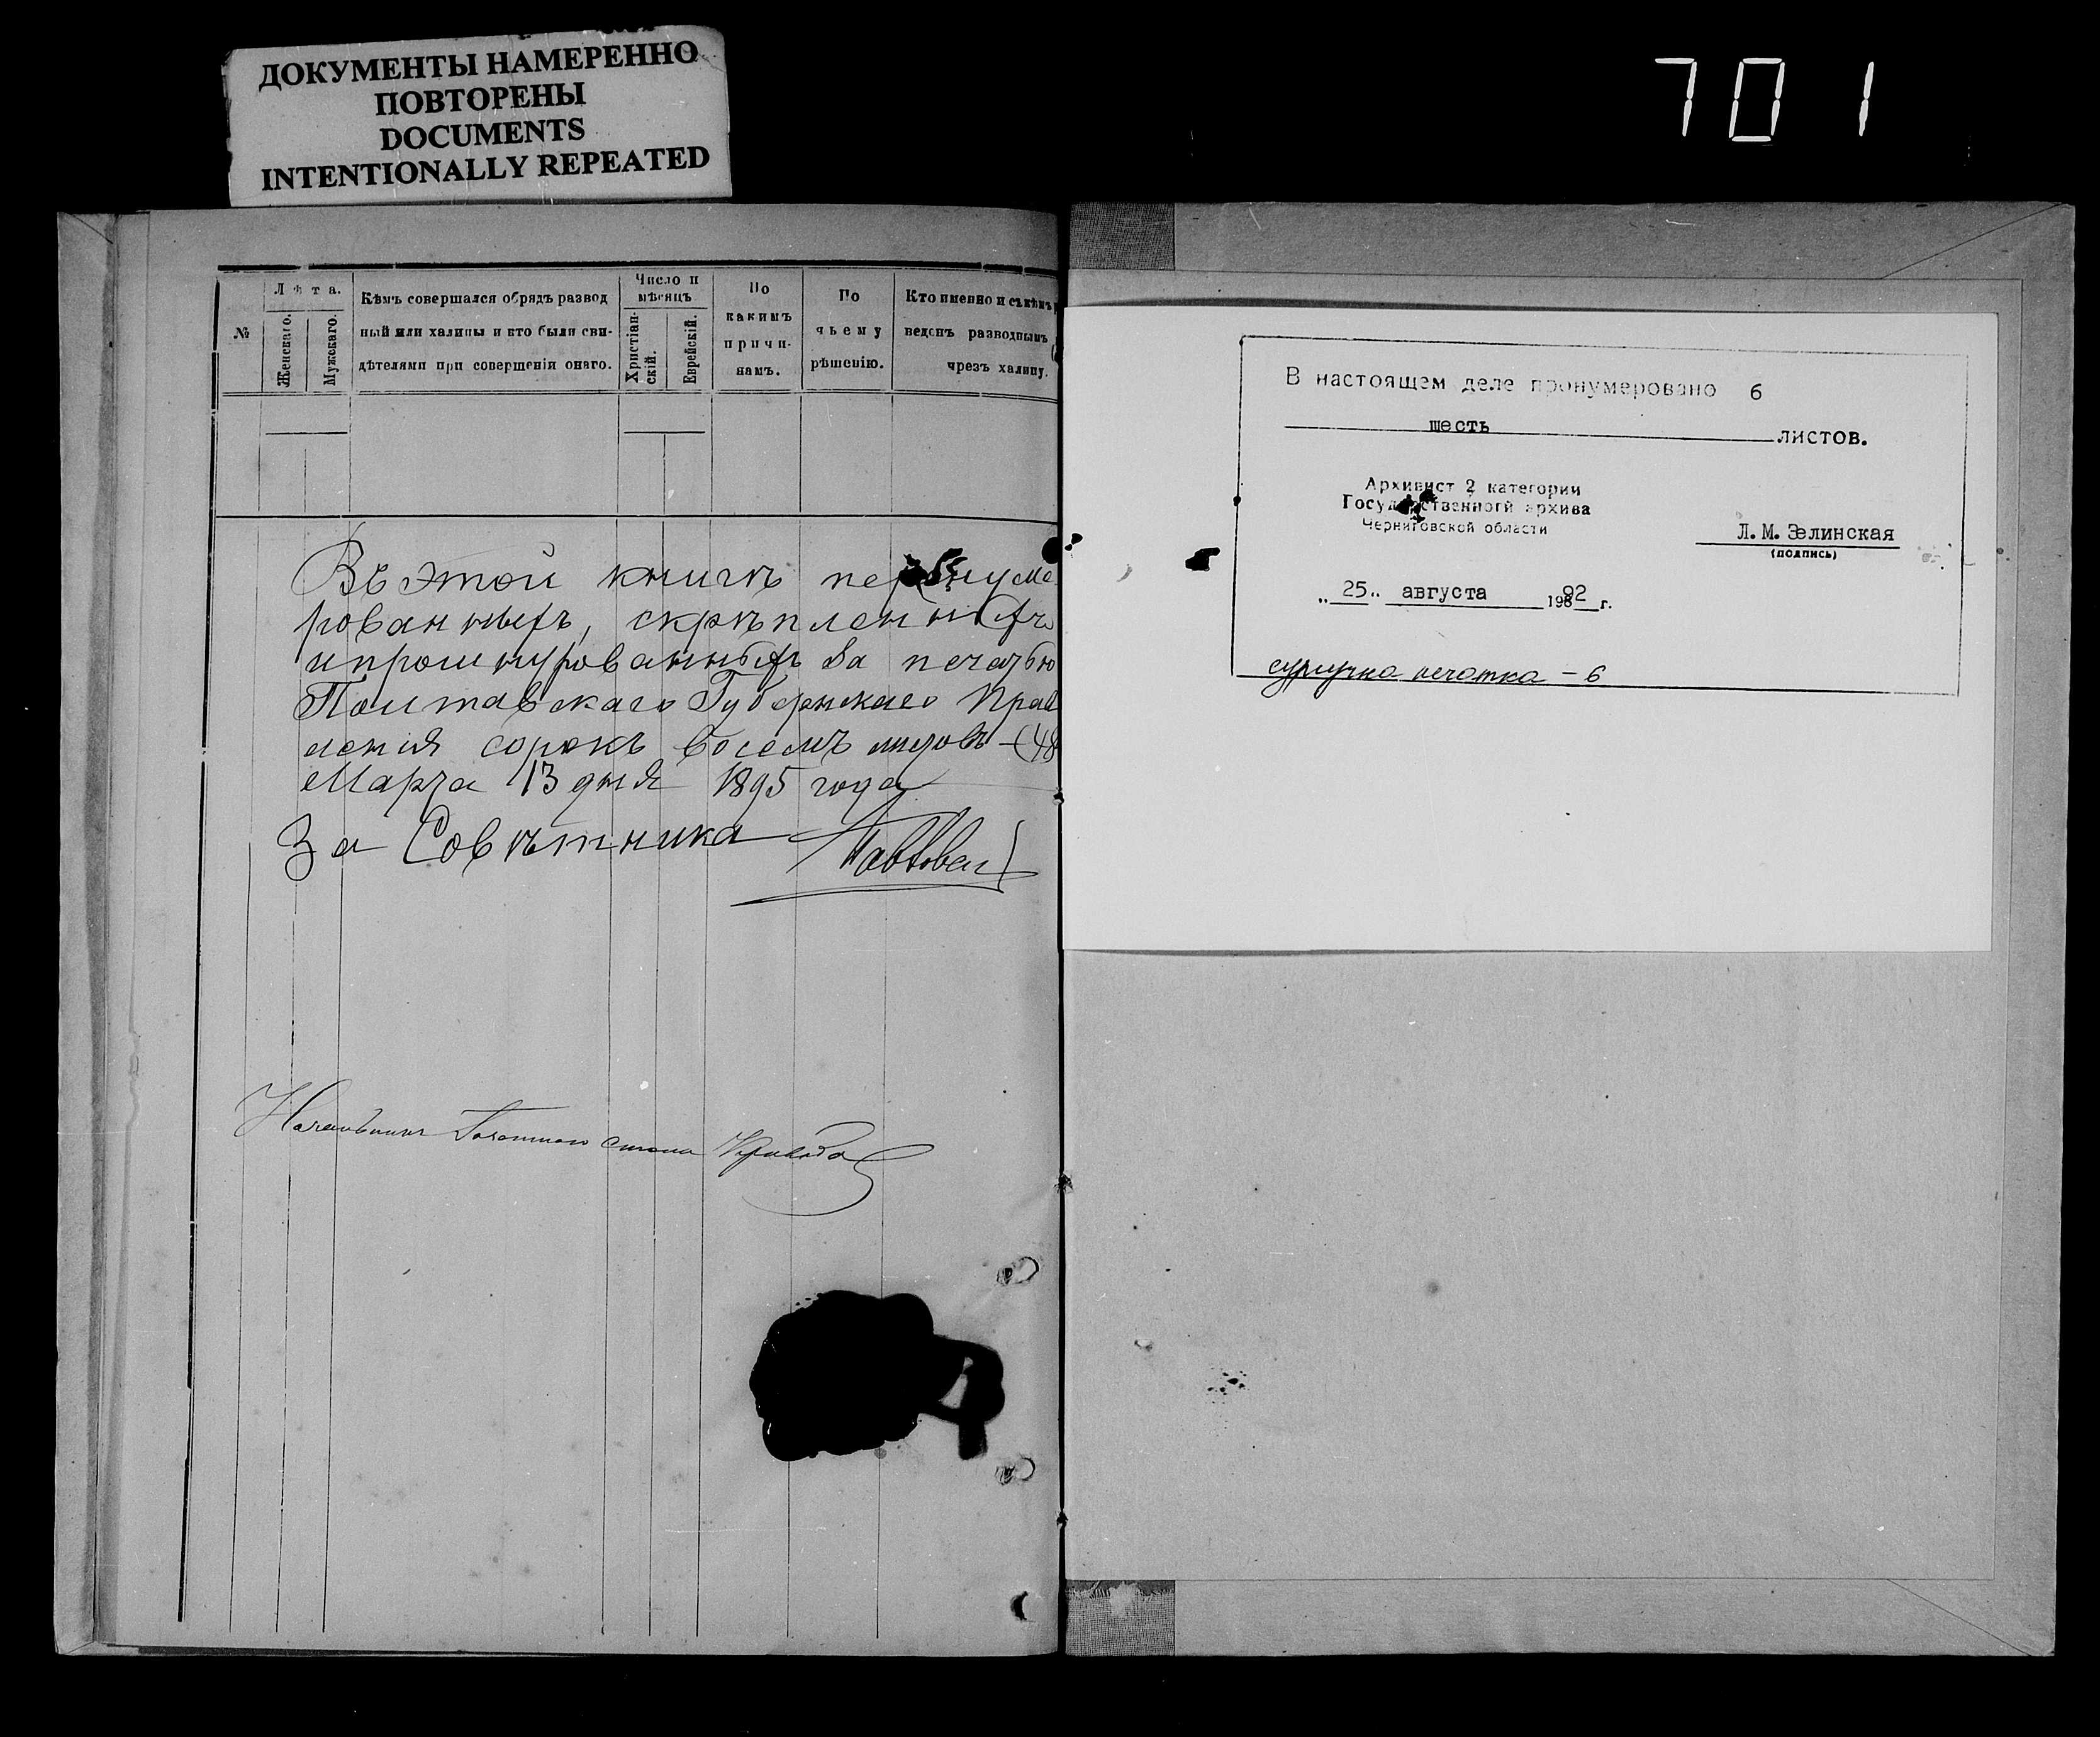 ДОКУМЕНТЫ НАМЕРЕННО
ПОВТОРЕНЫ
DOCUMENTS
INTENTIONALLY REPEATED
701
№
Лѣта.
Женскаго.
Мужскаго.
Кѣмъ совершался обрядъ развод
ный или халицы и кто были сви-
дѣтелями при совершеніи онаго.
Число и
мѣсяцъ
Христіан-
скій.
Еврейскій.
По
какимъ
причи-
намъ.
По
чьему
рѣшенію.
Кто именно и съ кѣмъ
веденъ разводнымъ
чрезъ халицу.
Въ этой книгѣ перенуме
рованныхъ, скрѣпленныхъ
и прошнурованныхъ за печатью
Полтавскаго Губернскаго Прав
ленія сорокъ восемь листовъ - (48
Марта 13 дня 1895 года
За Совѣтника
Начальникъ Газетнаго стола
В настоящем деле пронумеровано 6
шесть листов.
Архивист 2 категории
Государственногй архива
Черниговской области
Л.М.Зелинская
(подпись)
„25„ августа 1992 г.
сургучна печатка - 6